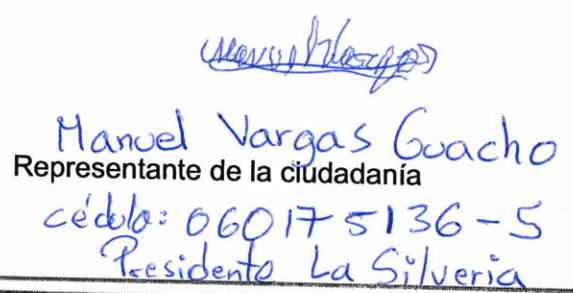 Manuel Vargas Guacho
Representante de la ciudadanía
cédula: 060175136-5
Presidente La Silveria